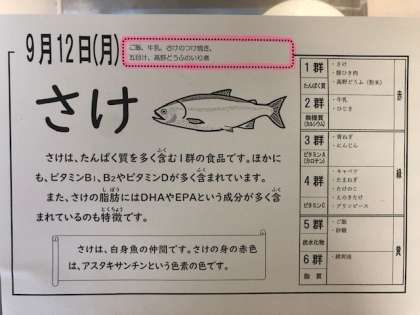 9月12日(月)
ご飯、牛乳、さけのつけ焼き、
五目汁、高野どうふのいり煮
さけ
さけは、たんぱく質を多く含む1群の食品です。ほかに
も、ビタミンB₁、B₂やビタミンDが多く含まれています。
また、さけの脂肪にはDHAやEPAという成分が多く含
まれているのも特徴です。
さけは、白身魚の仲間です。さけの身の赤色
は、アスタキサンチンという色素の色です。
1群
たんぱく質
・さけ
・豚ひき肉
・高野どうふ(粉末)
2群
無機質
(カルシウム)
・牛乳
・ひじき
赤
3群
ビタミンA
(カロテン)
・青ねぎ
・にんじん
4群
ビタミンC
・キャベツ
・たまねぎ
・たけのこ
・えのきたけ
・グリンピース
緑
5群
炭水化物
・ご飯
・砂糖
6群
脂質
・綿実油
黄